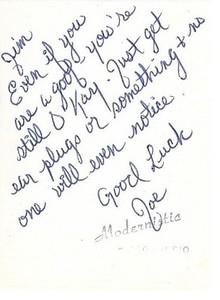 Jim
Even if you
are a goof you're
still O Kay. Just get
ear plugs or something & no
one will even notice.
Good Luck
Joe
Modernistic